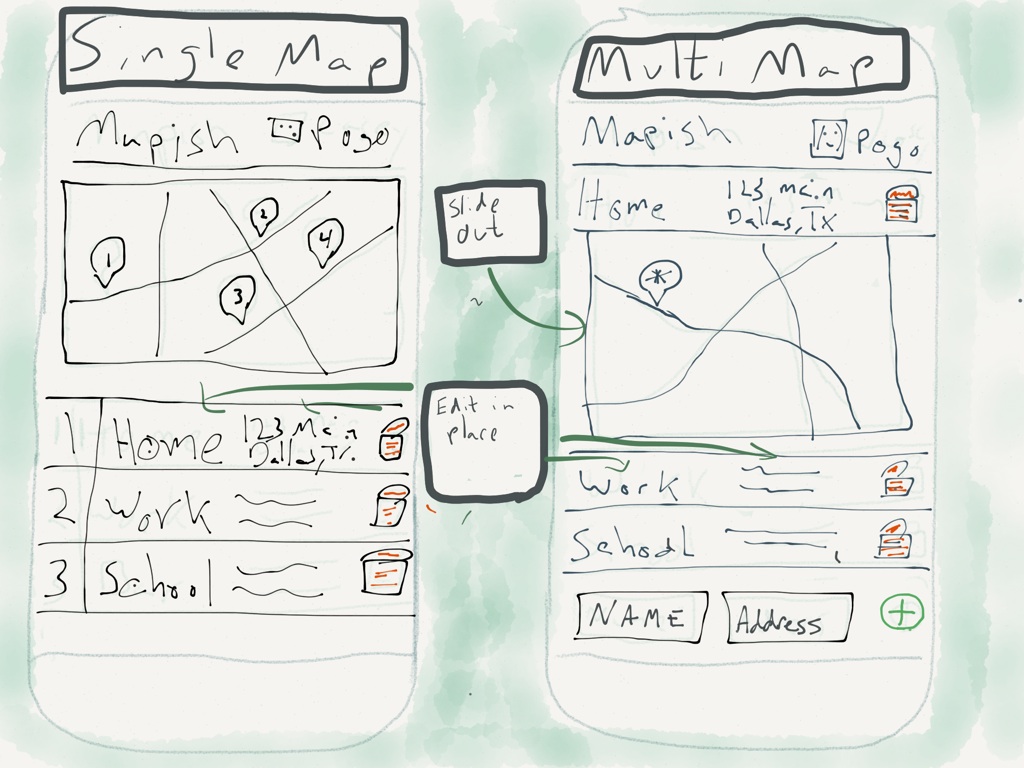 Single Map
Mapish Pogo
1
2
4
3
1 Home 123 Main
Dallas, TX
2 Work
3 School
Slide
out
Edit in
place
Multi Map
Mapish Pogo
Home 123 Main
Dallas, TX
*
Work
School
NAME Address +